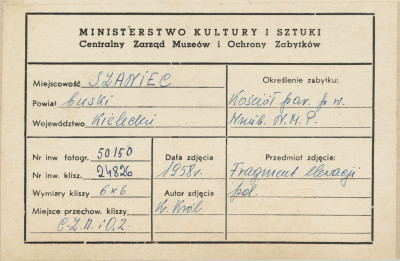 MINISTERSTWO KULTURY I SZTUKI
Centralny Zarząd Muzeów i Ochrony Zabytków
Miejscowość SZANIEC
Powiat buski
Województwo Kielecki
Określenie zabytku:
Kościół par. p. w.
Wnieb. N.M.P.
Nr inw fotogr. 50150
Nr inw. klisz. 24826
Wymiary kliszy 6x6
Miejsce przechow. kliszy
C.Z.M. i O.Z.
Data zdjęcia
1958r.
Autor zdjęcia
K. Król
Przedmiot zdjęcia:
Fragment elewacji
płd.